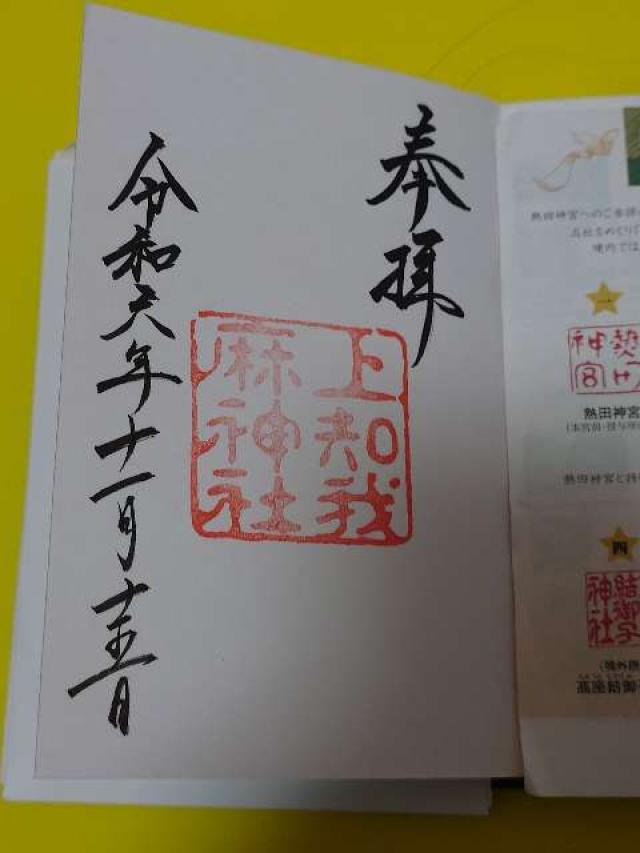 奉拝
上知我
麻神社
令和元年十一月十五日
熱田神宮へのご参拝
五社をめぐり
境内では
一
熱田
神宮
熱田神宮
(本宮前・授与所
熱田神宮と
四
結御子
神社
(境外摂
高座結御子